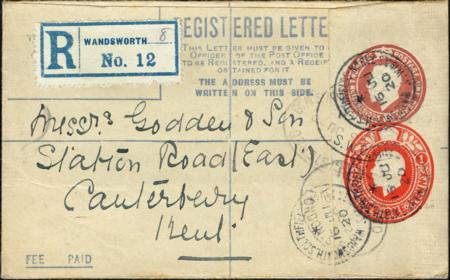 REGISTERED LETTE
THIS LETTER MUST BE GIVEN TO
OFFICER OF THE POST OFFICE
TO BE REGISTERED, AND A RECEIPT
OBTAINED FOR IT.
THE ADDRESS MUST BE
WRITTEN ON THIS SIDE.
R
WANDSWORTH 8
No. 12
Messrs Godden & Son
Station Road (East)
Canterbury
Kent
FEE PAID